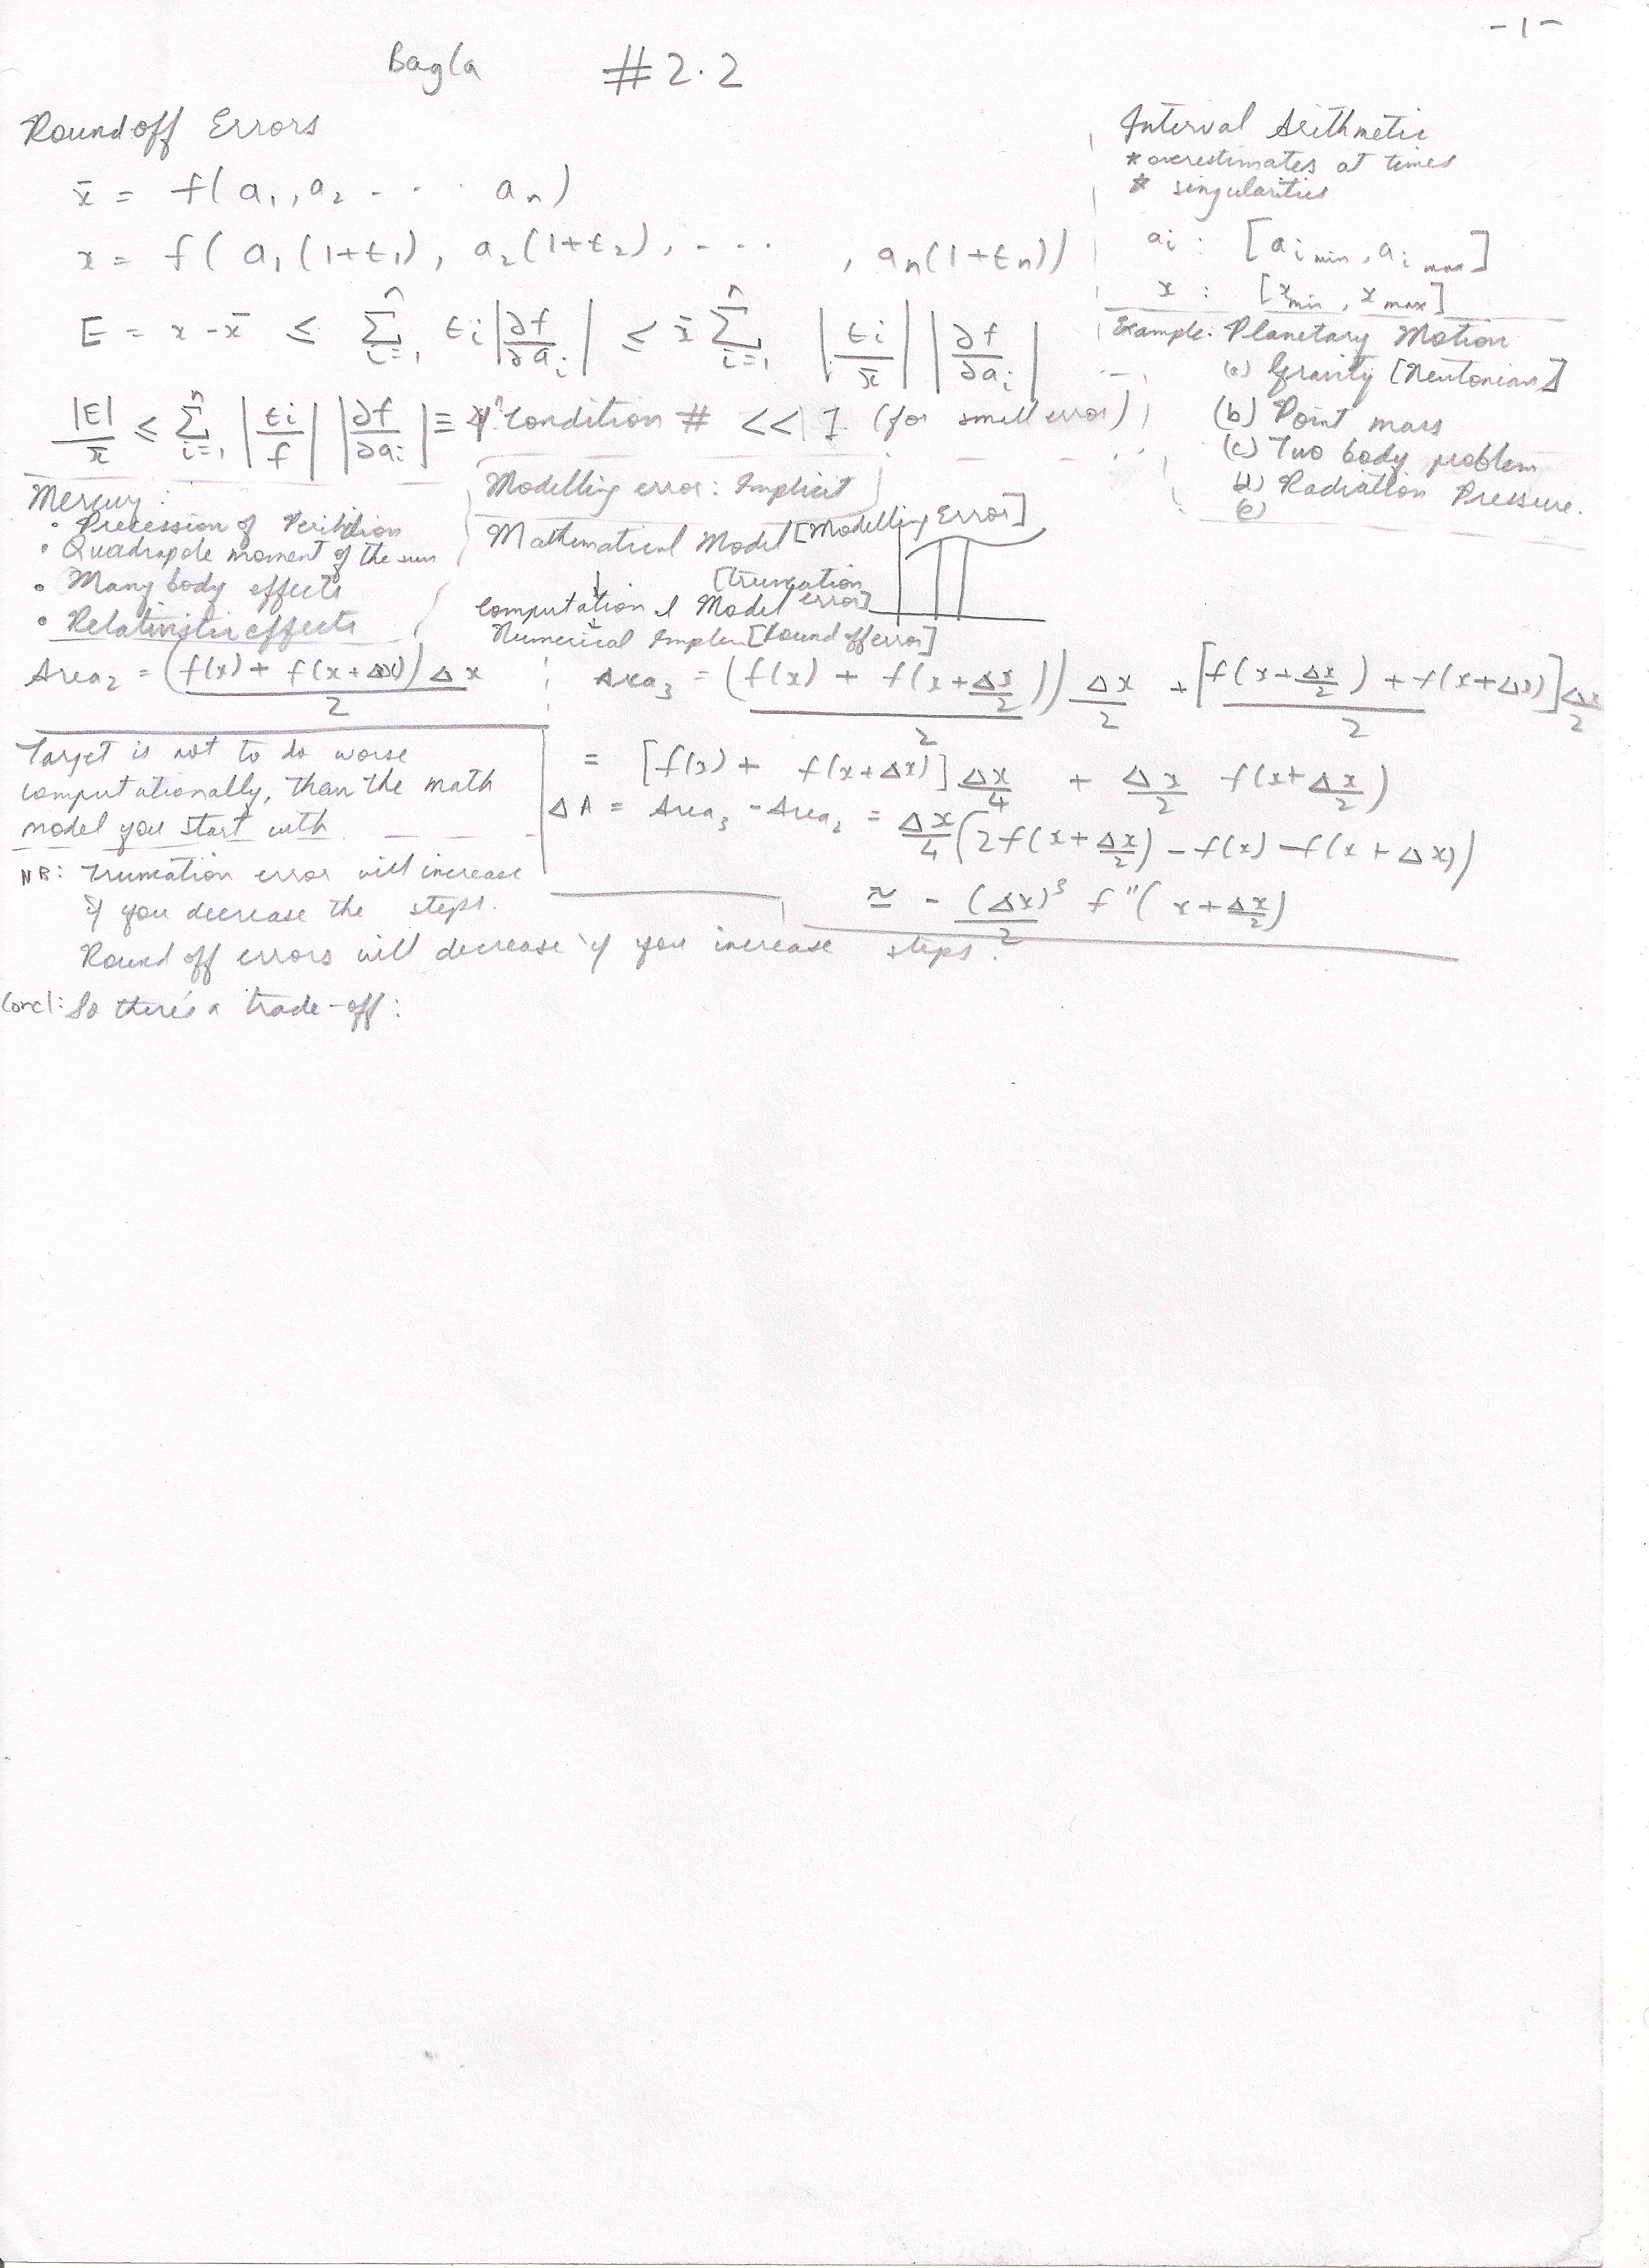 -1-
Bagla #2.2
Roundoff Errors
x̄ = f(a₁, a₂ - - · · aₙ)
x = f(a₁(1+ε₁), a₂(1+ε₂), - - · · , aₙ(1+εₙ))
E = x - x̄ ≤ Σⁿᵢ₌₁ εi |∂f/∂aᵢ| ≤ x̄ Σⁿᵢ₌₁ |εi/x̄| |∂f/∂aᵢ|
|E|/x̄ ≤ Σⁿᵢ₌₁ |εi/f| |∂f/∂aᵢ| ≡ Condition # << 1 (for small error)
Interval Arithmetic
* overestimates at times
* singularities
ai : [aᵢ min, aᵢ max]
x : [x min, x max]
Example: Planetary Motion
(a) Gravity [Newtonian]
(b) Point mass
(c) Two body problem
(d) Radiation Pressure.
(e)
Mercury:
• Precession of
• Quadrapole moment of the sun
• Many body effects
• Relativistic effects
Modelling error: Implicit
Mathematical Model [Modelling Error]
↓ [truncation
Computational Model error]
Numerical Implem [Round off error]
Area₂ = (f(x) + f(x+Δx)) Δx / 2
Area₃ = (f(x) + f(x+Δx/2))/2 Δx/2 + [f(x+Δx/2) + f(x+Δx)]/2 Δx/2
= [f(x) + f(x+Δx)] Δx/4 + Δx/2 f(x+Δx/2)
ΔA = Area₃ - Area₂ = Δx/4 (2f(x+Δx/2) - f(x) - f(x+Δx))
≈ - (Δx)³/2 f"(x+Δx/2)
Target is not to do worse
computationally, than the math
model you start with
NB: Truncation error will increase
if you decrease the steps.
Round off errors will decrease if you increase steps.
Concl: So there's a trade-off: